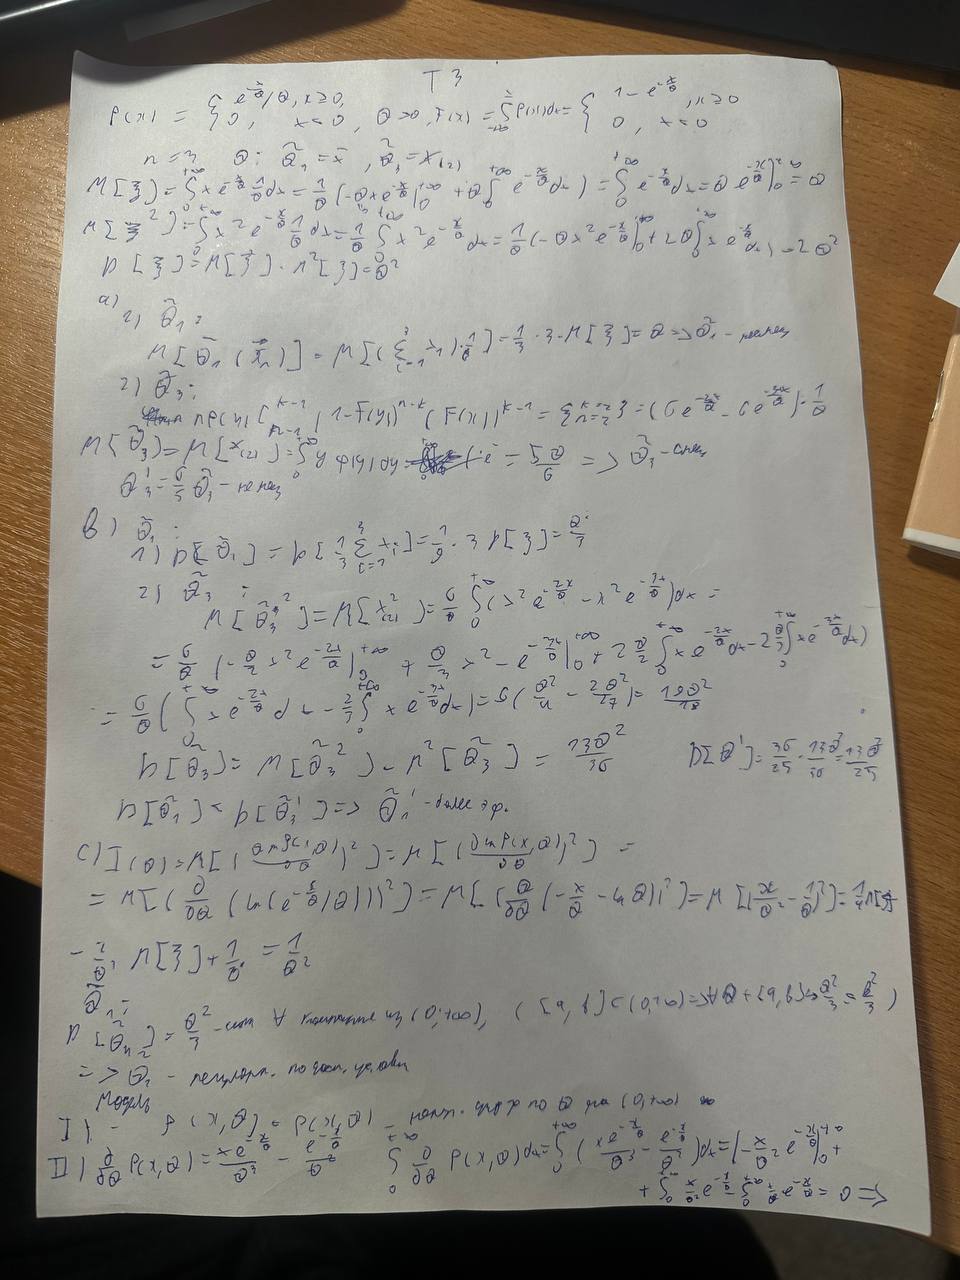 T 3
p(x) = { e^{-x/θ}/θ, x≥0, 0, x<0, θ>0, F(x) = ∫_{-∞}^{x} p(x)dx = { 1-e^{-x/θ}, x≥0 0, x<0
n=3 θ: θ̃₁ = x̄, θ̃₃ = x₍₂₎
M[ξ] = ∫_0^{+∞} x e^{-x/θ} 1/θ dx = 1/θ (-θx e^{-x/θ}|_0^{+∞} + θ∫_0^{+∞} e^{-x/θ}dx) = ∫_0^{+∞} e^{-x/θ}dx = θ e^{-x/θ}|_0^∞ = θ
M[ξ²] = ∫_0^{+∞} x² e^{-x/θ} 1/θ dx = 1/θ ∫_0^{+∞} x² e^{-x/θ}dx = 1/θ (-θx² e^{-x/θ}|_0^{+∞} + 2θ∫_0^{+∞} x e^{-x/θ}dx) = 2θ²
D[ξ] = M[ξ²] - M²[ξ] = θ²
a)
1) θ̃₁:
M[θ̃₁(x⃗ₙ)] = M[(Σ_{i=1}^{3} xᵢ)·1/3] = 1/3·3·M[ξ] = θ => θ̃₁ -
2) θ̃₃:
C_{n-1}^{k-1} (1-F(y))^{n-k} (F(y))^{k-1} = {k=2} = (6e^{-2x/θ} - 6e^{-3x/θ})·1/θ
M[θ̃₃] = M[x₍₂₎] = ∫_0^{+∞} y φ(y)dy = 5θ/6 => θ̃₃ - смещ
θ̃₃' = 6/5 θ̃₃ - несмещ
b) θ̃₁:
1) D[θ̃₁] = D[1/3 Σ_{i=1}^{3} xᵢ] = 1/9·3 D[ξ] = θ²/3
2) θ̃₃:
M[θ̃₃²] = M[x²₍₂₎] = 6/θ ∫_0^{+∞} (x² e^{-2x/θ} - x² e^{-3x/θ})dx =
= 6/θ (-θ/2 x² e^{-2x/θ}|_0^{+∞} + θ/3 x² - e^{-3x/θ}|_0^{+∞} + 2 θ/2 ∫_0^{+∞} x e^{-2x/θ}dx - 2 θ/3 ∫_0^{+∞} x e^{-3x/θ}dx)
= 6/θ (∫_0^{+∞} x e^{-2x/θ}dx - 2/3 ∫_0^{+∞} x e^{-3x/θ}dx) = 6(θ²/4 - 2θ²/27) = 19θ²/18
D[θ̃₃] = M[θ̃₃²] - M²[θ̃₃] = 13θ²/36 D[θ'] = 36/25 · 13θ²/36 = 13θ²/25
D[θ̃₁] < D[θ̃₃'] => θ̃₁ - более эф.
c) I(θ) = M[(∂ln p(x,θ)/∂θ)²] = M[(∂ln p(x,θ)/∂θ)²] =
= M[(∂/∂θ (ln(e^{-x/θ}/θ)))²] = M[(∂/∂θ (-x/θ - ln θ))²] = M[(x/θ² - 1/θ)²] =
- 2/θ³ M[ξ] + 1/θ² = 1/θ²
θ̃₁:
D[θ̃₁] = θ²/3 - ∀ из (0,+∞), ([a,b]⊂(0,+∞) => ∀θ∈[a,b] θ²/3 = θ²/3)
=> θ̃₁ - регулярн. по
Модель
I) - p(x,θ) = p(x,θ) - по θ на (0,+∞)
II) ∂/∂θ p(x,θ) = x e^{-x/θ}/θ³ - e^{-x/θ}/θ² ∫_0^{+∞} ∂/∂θ p(x,θ)dx = ∫_0^{+∞} (x e^{-x/θ}/θ³ - e^{-x/θ}/θ²)dx = (-x/θ² e^{-x/θ}|_0^{+∞} +
+ ∫_0^{+∞} = 0 =>